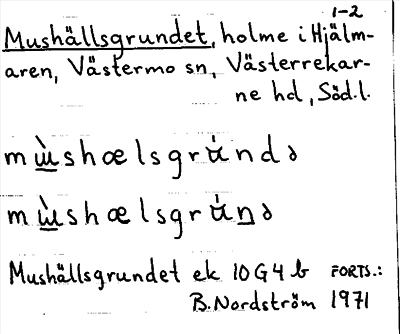 1-2
Mushällsgrundet, holme i Hjälm-
aren, Västermo sn, Västerrekar-
ne hd, Söd.l.
m ɯ̀ s h æ l s g r ɯ́ n d ə
m ɯ̀ s h æ l s g r ɯ́ n ə
Mushällsgrundet ek 10G4b FORTS.:
B. Nordström 1971